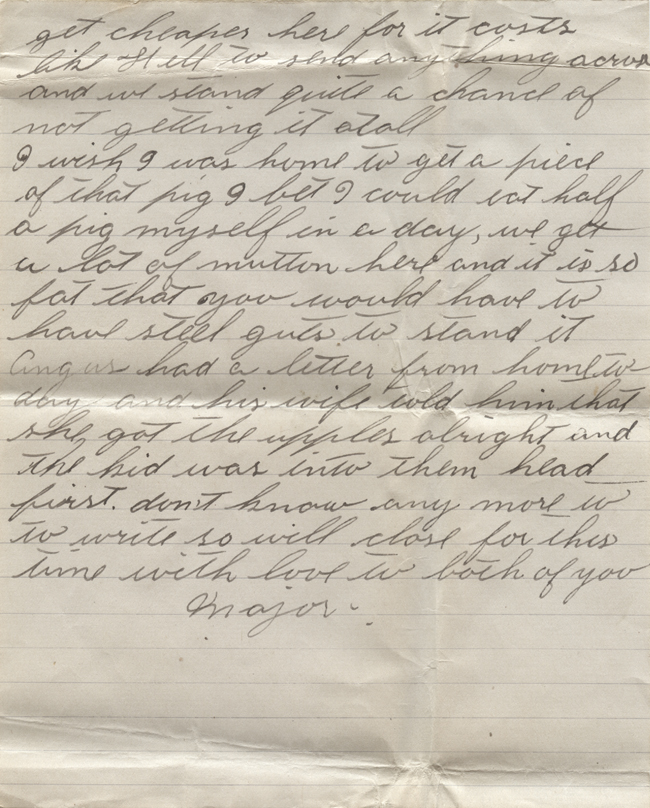 get cheaper here for it costs
like Hell to send anything across
and we stand quite a chance of
not getting it atall
I wish I was home to get a piece
of that pig I bet I could eat half
a pig myself in a day, we get
a lot of mutton here and it is so
fat that you would have to
have steel guts to stand it
Angus had a letter from home to
day and his wife told him that
she got the apples alright and
the kid was into them head
first. don't know any more to
to write so will close for this
time with love to both of you
Major.